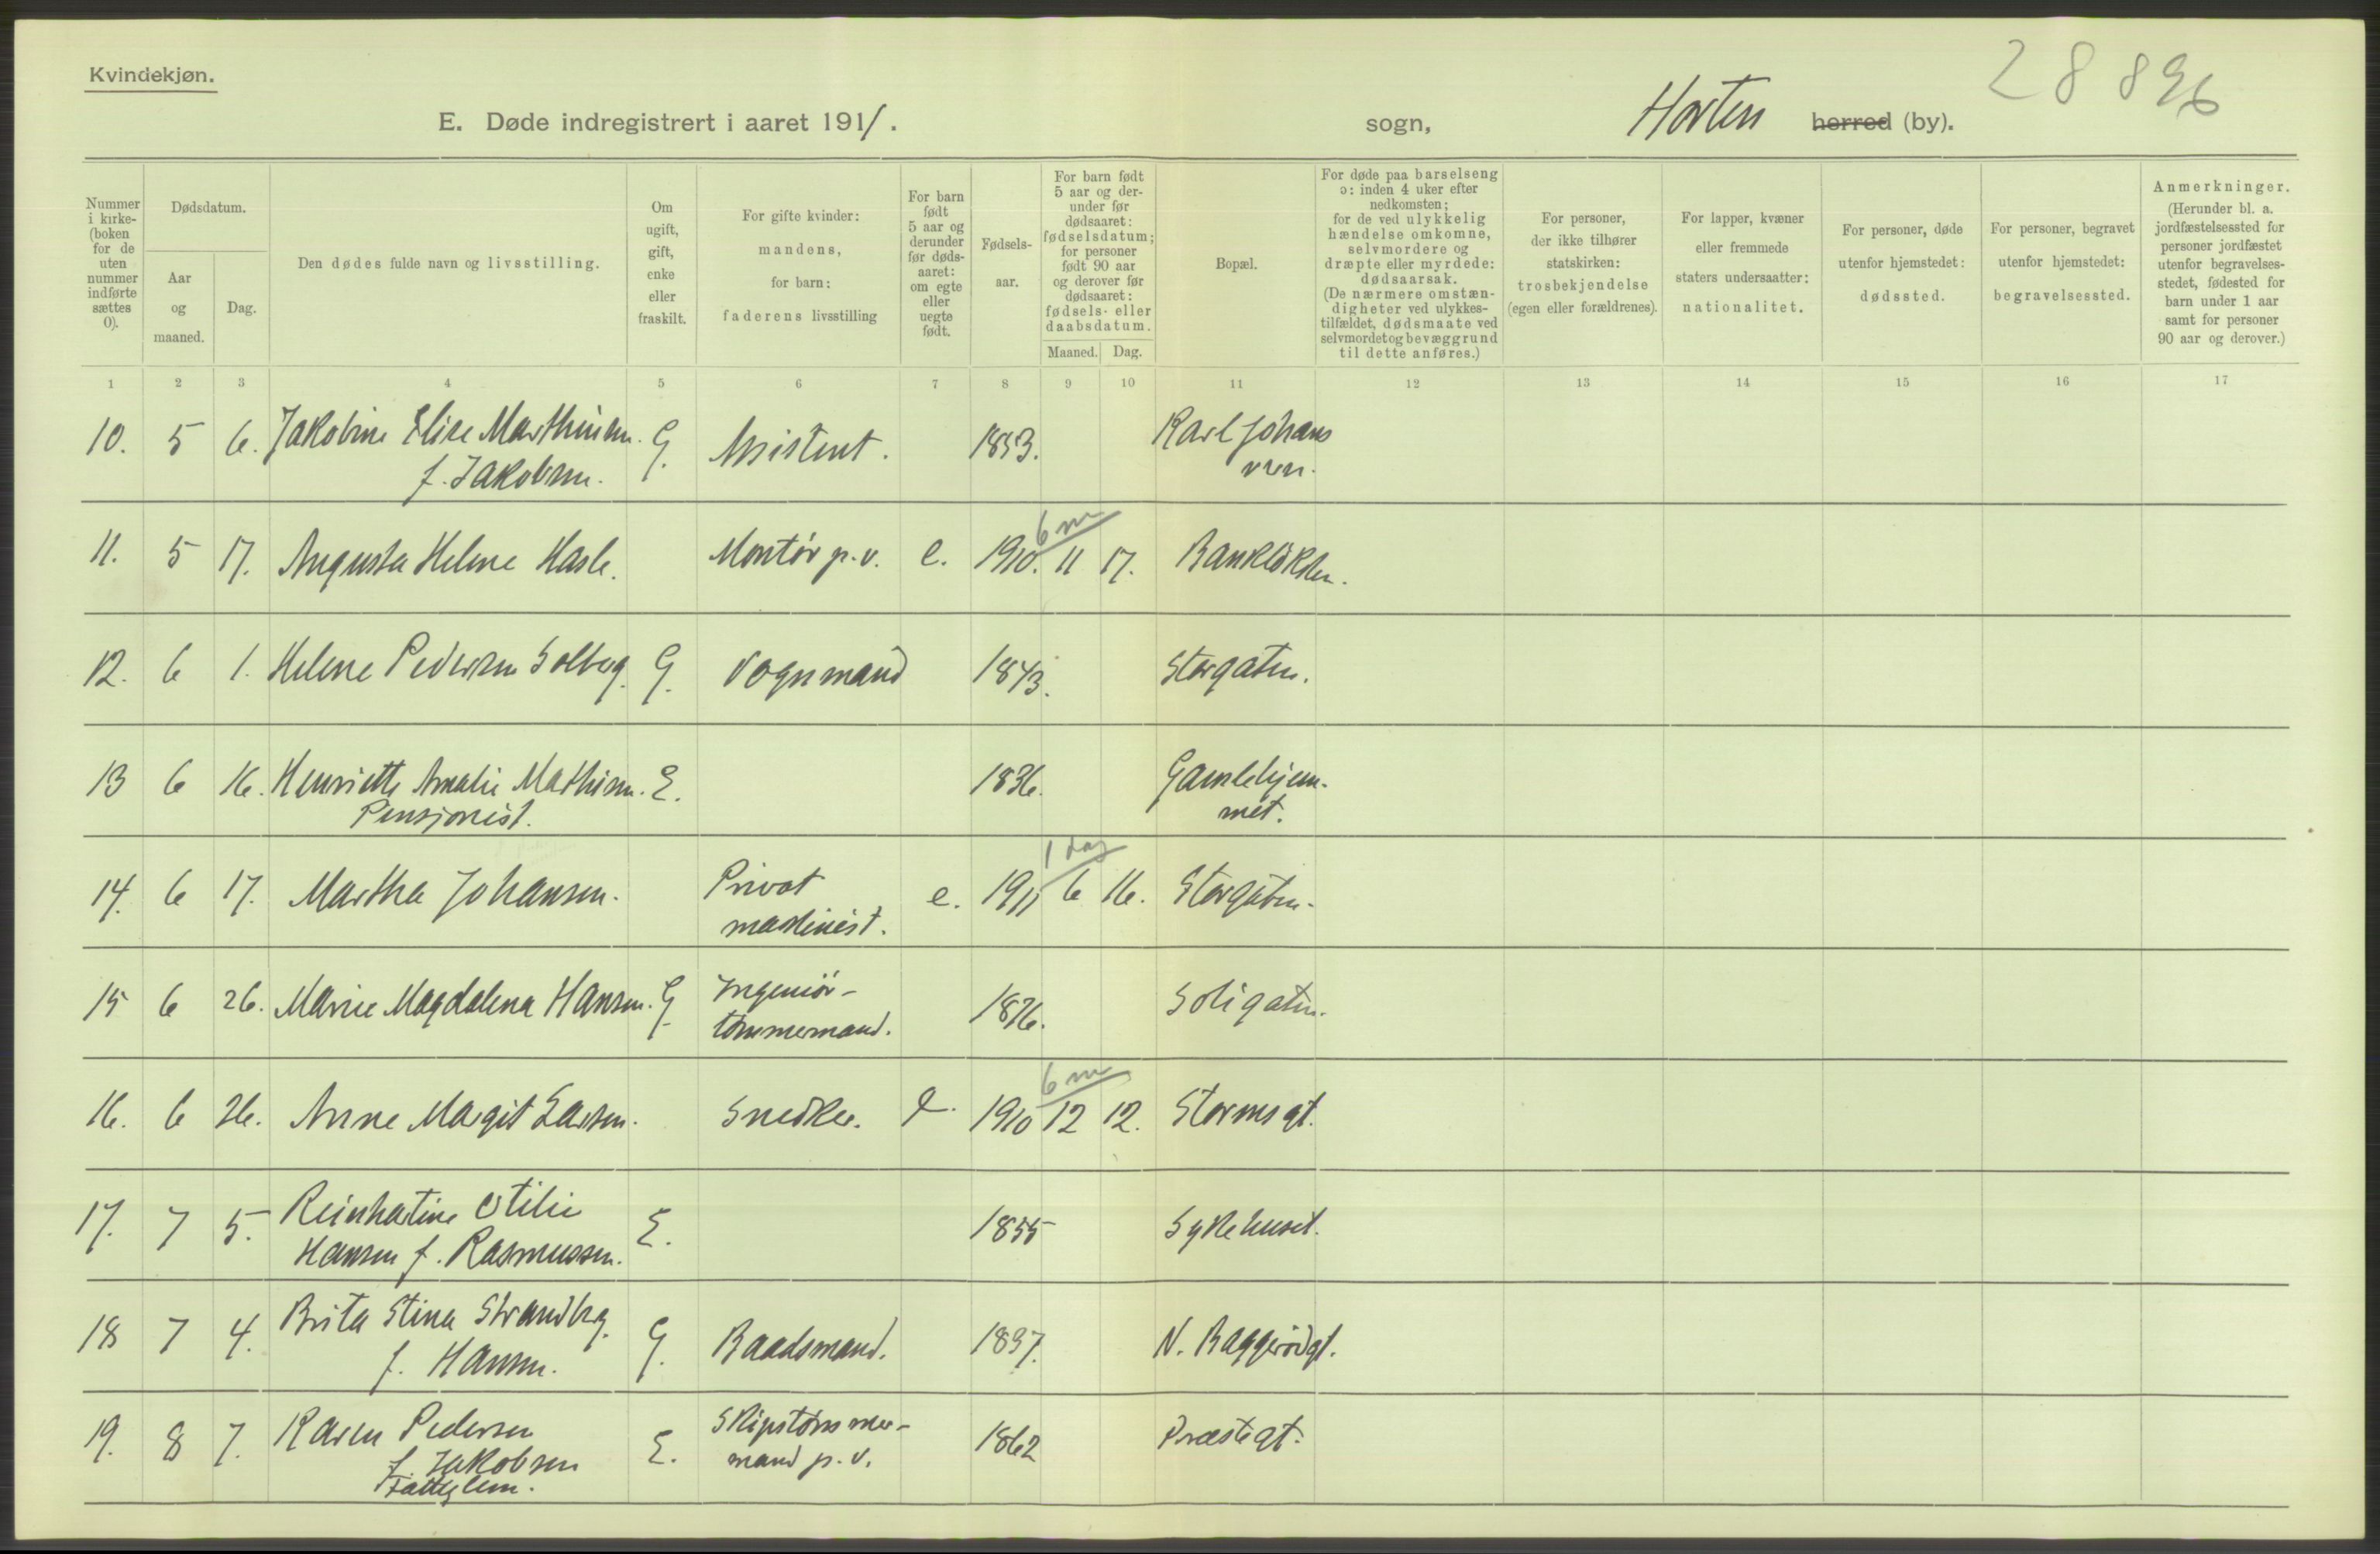 Kvindekjøn.
28 896
E. Døde indregistrert i aaret 1911.
sogn, Horten herred (by).
Nummer i kirke- (boken for de uten nummer indførte sættes 0).
Dødsdatum.
Aar og maaned.
Dag.
Den dødes fulde navn og livsstilling.
Om ugift, gift, enke eller fraskilt.
For gifte kvinder: mandens, for barn: faderens livsstilling
For barn født 5 aar og derunder før døds- aaret: om egte eller uegte født.
Fødsels- aar.
For barn født 5 aar og der- under før dødsaaret: fødselsdatum; for personer født 90 aar og derover før dødsaaret: fødsels- eller daabsdatum.
Maaned.
Dag.
Bopæl.
For døde paa barselseng ɔ: inden 4 uker efter nedkomsten; for de ved ulykkelig hændelse omkomne, selvmordere og dræpte eller myrdede: dødsaarsak. (De nærmere omstæn- digheter ved ulykkes- tilfældet, dødsmaate ved selvmordet og bevæggrund til dette anføres.)
For personer, der ikke tilhører statskirken: trosbekjendelse (egen eller forældrenes).
For lapper, kvæner eller fremmede staters undersaatter: nationalitet.
For personer, døde utenfor hjemstedet: dødssted.
For personer, begravet utenfor hjemstedet: begravelsessted.
Anmerkninger. (Herunder bl. a. jordfæstelsessted for personer jordfæstet utenfor begravelses- stedet, fødested for barn under 1 aar samt for personer 90 aar og derover.)
1 2 3 4 5 6 7 8 9 10 11 12 13 14 15 16 17
10. 5 6. Jakobine Elise Marthinsen. G. Assistent. 1853. Karl Johans
f. Jakobsen. væn.
6 m
11. 5 17. Augusta Helene Hasle. Montör p.v. e. 1910. 11 17. Banklökken.
12. 6 1. Helene Pedersen Solberg. G. Vognmand 1843. Storgaten.
13 6 16. Henriette Amalie Mathisen. E. 1836. Gamlehjem-
Pensjonist. met.
1 dag
14. 6 17. Martha Johansen. Privat e. 1911 6 16. Storgaten.
maskinist.
15 6 26. Marie Magdalena Hansen. G. Ingeniör- 1876. Soligaten.
tömmermand.
6 m
16. 6 26. Anne Margit Larsen. Snedker. e. 1910 12 12. Stormsgt.
17. 7 5. Reinhartine Otilie E. 1855 Sykehuset.
Hansen f. Rasmussen.
18 7 4. Brita Stina Strandberg. G. Baadsmand. 1837. N. Baggerödgt.
f. Hansen.
19. 8 7. Karen Pedersen E. Skipstömmer- 1862 Præstegt.
f. Jakobsen mand p.v.
Fattiglem.